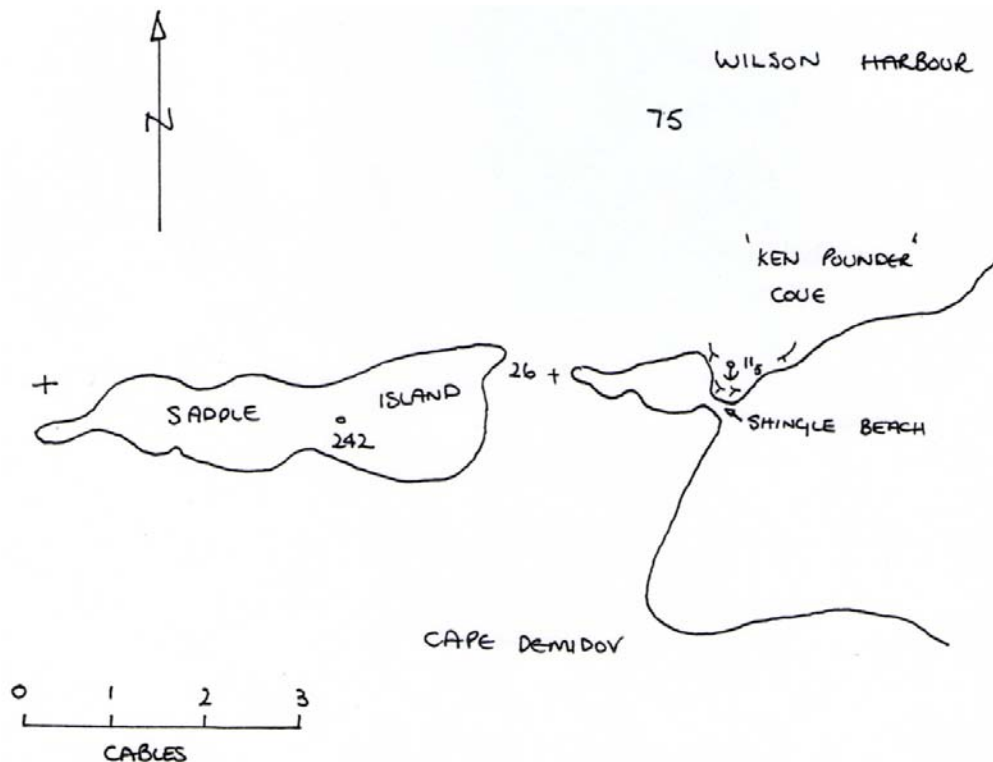 N
WILSON HARBOUR
75
'KEN POUNDER'
COVE
26
11₅
SADDLE ISLAND
242
SHINGLE BEACH
CAPE DEMIDOV
0 1 2 3
CABLES